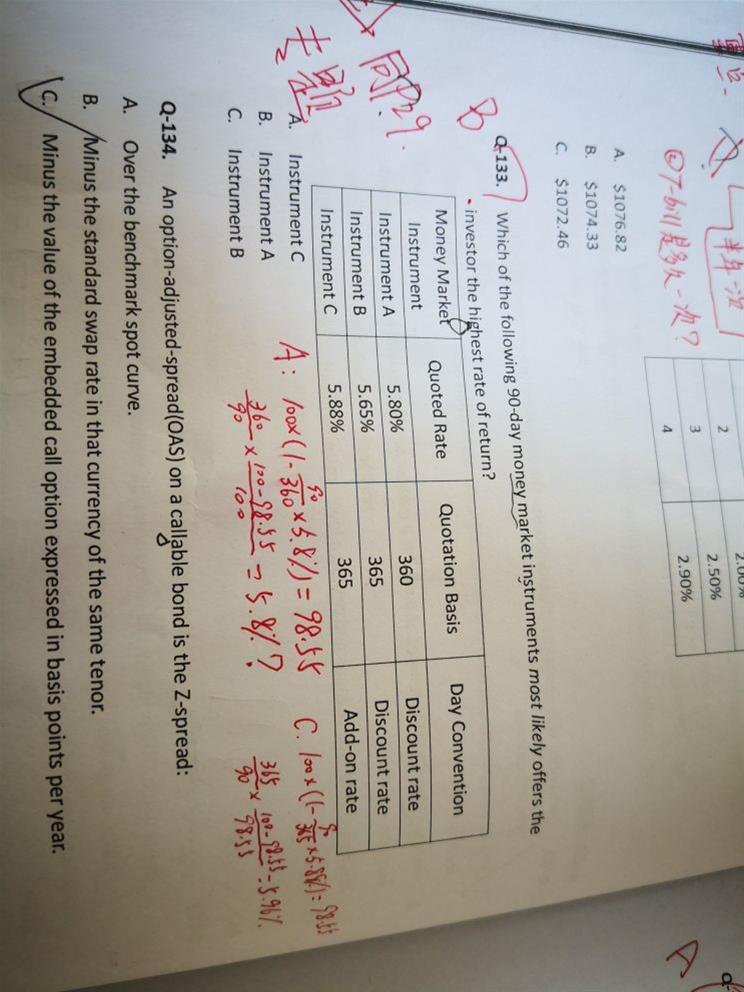 重点.
半年一次
②T-bill是多久一次?
2.00%
2 2.50%
3 2.90%
4
A. $1076.82
B. $1074.33
C. $1072.46
B
Q-133. Which of the following 90-day money market instruments most likely offers the
investor the highest rate of return?
Money Market Instrument Quoted Rate Quotation Basis Day Convention
Instrument A 5.80% 360 Discount rate
Instrument B 5.65% 365 Discount rate
Instrument C 5.88% 365 Add-on rate
同P29.
A. Instrument C
B. Instrument A
C. Instrument B
A: 100×(1-90/360×5.8%)=98.55
360/90×100-98.55/100=5.8%?
C. 100×(1-90/365×5.88%)=98.55
365/90×100-98.55/98.55=5.96%.
Q-134. An option-adjusted-spread(OAS) on a callable bond is the Z-spread:
A. Over the benchmark spot curve.
B. Minus the standard swap rate in that currency of the same tenor.
C. Minus the value of the embedded call option expressed in basis points per year.
A
Q-